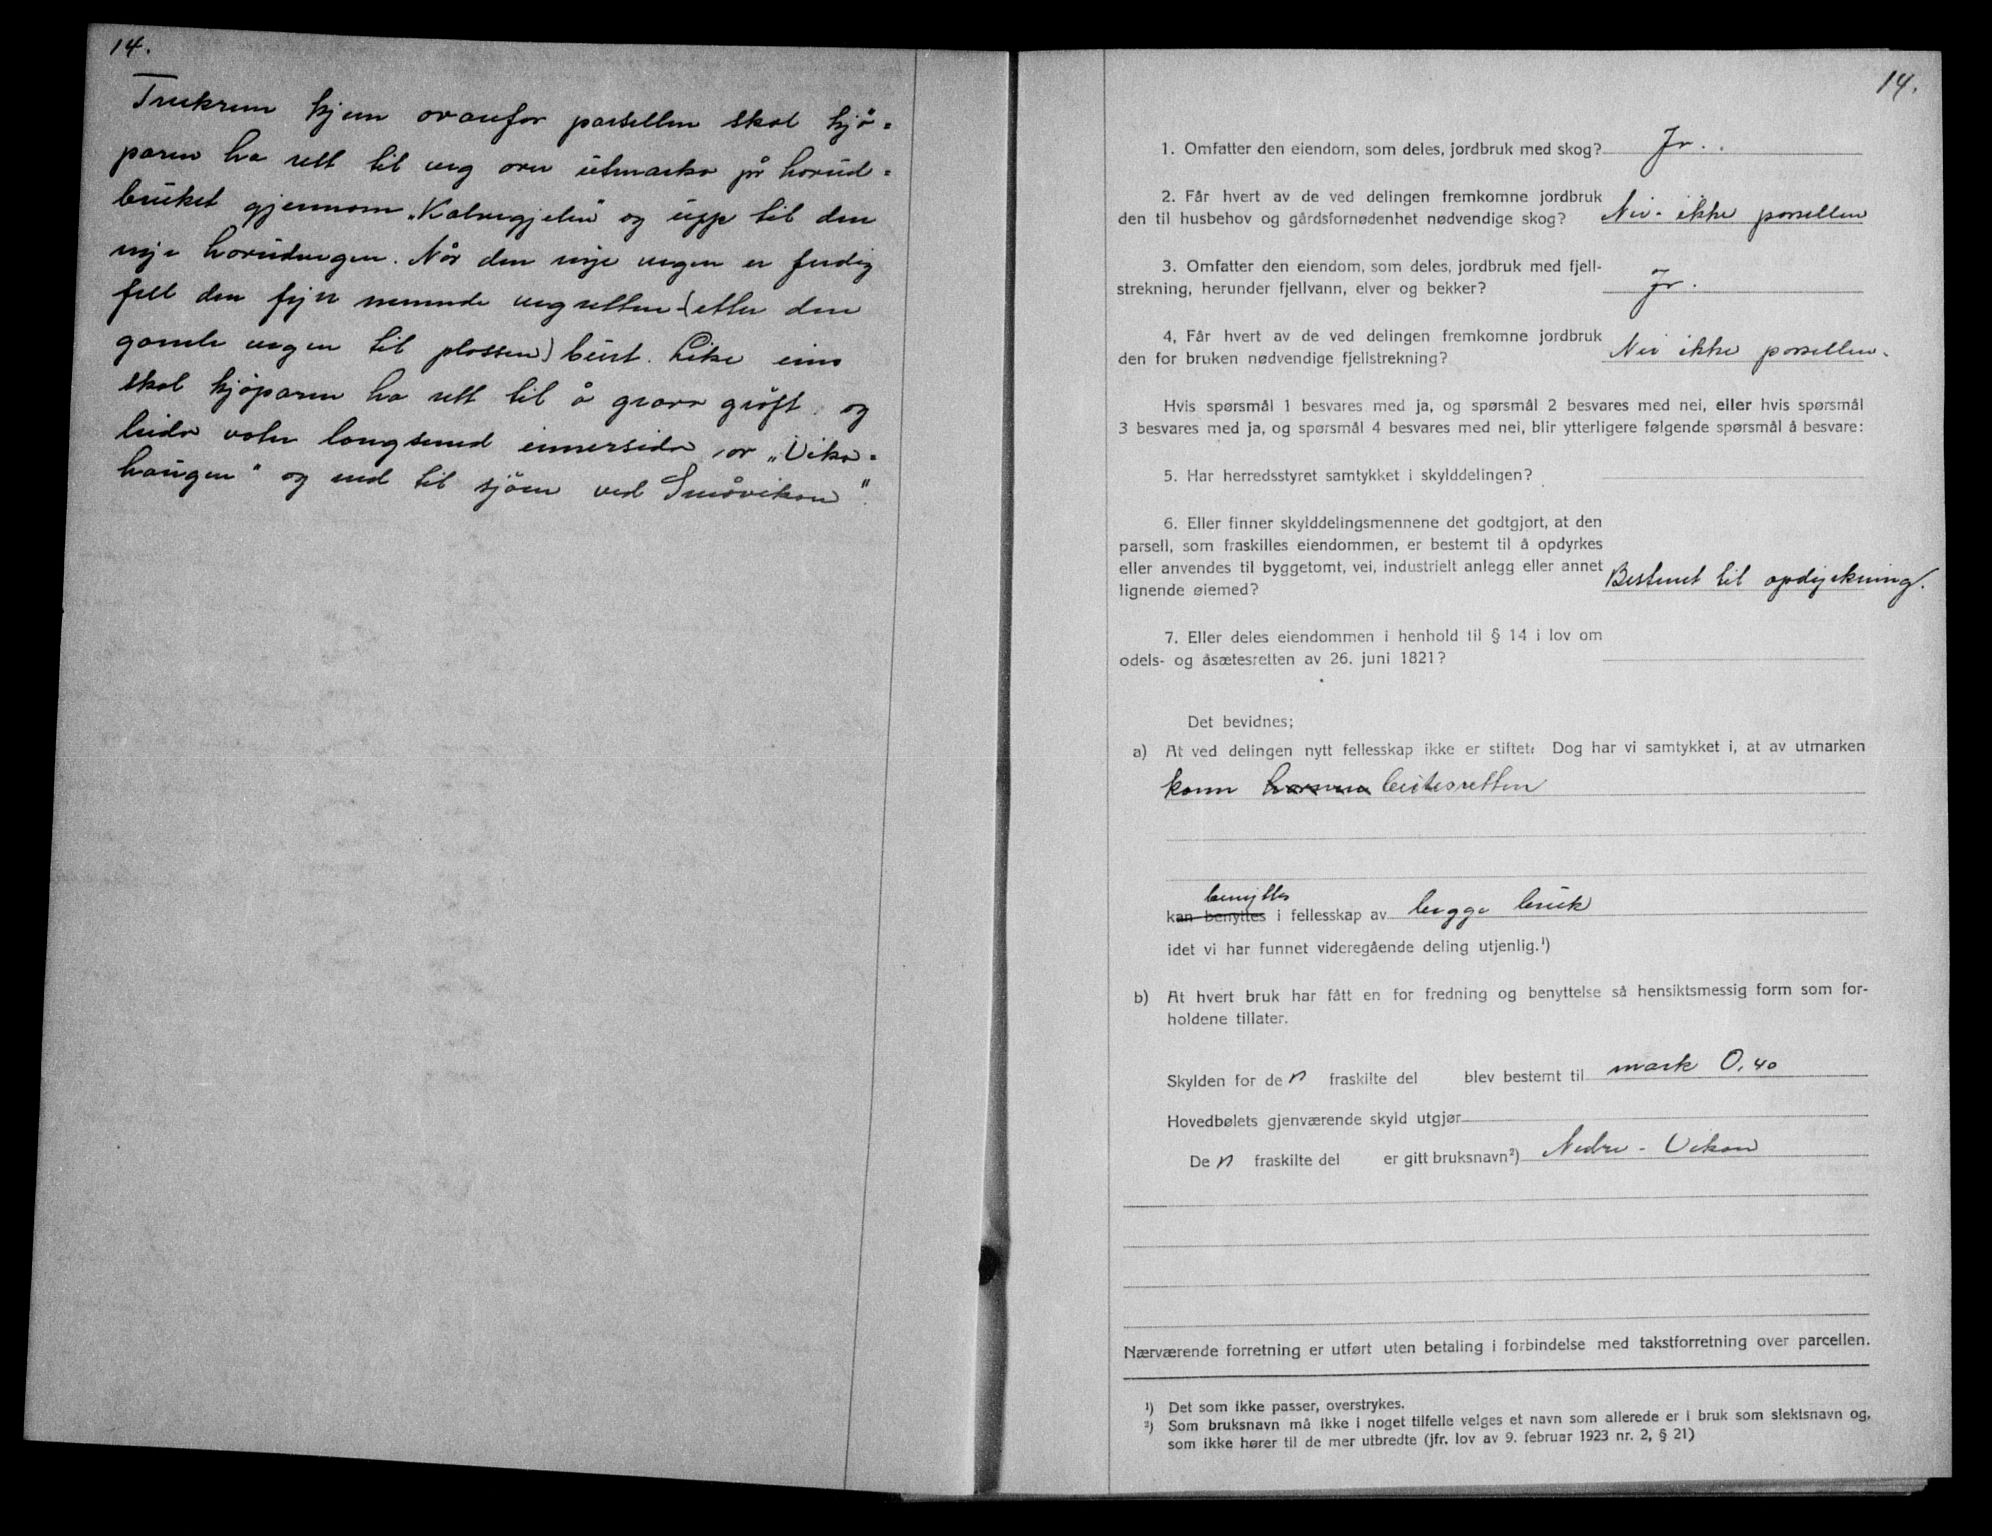 14.
kjem ovanfor parsellen skal kjø-
paren ha rett til veg over utmarka på hovud-
bruket gjennom „Kalvegjelen" og upp til den
nye hovudvegen. Når den nye vegen er ferdig
fell den fyrr nemnde vegretten (etter den
gamle vegen til plassen) burt. Like eins
skal kjøparen ha rett til å grava grøft og
leida vatn langsmed innersida av „Vika-
haugen" og ned til sjøen ved Småvikan".
14.
1. Omfatter den eiendom, som deles, jordbruk med skog? Ja.
2. Får hvert av de ved delingen fremkomne jordbruk
den til husbehov og gårdsfornødenhet nødvendige skog? Nei - ikke parsellen
3. Omfatter den eiendom, som deles, jordbruk med fjell-
strekning, herunder fjellvann, elver og bekker? Ja.
4, Får hvert av de ved delingen fremkomne jordbruk
den for bruken nødvendige fjellstrekning? Nei ikke parsellen.
Hvis spørsmål 1 besvares med ja, og spørsmål 2 besvares med nei, eller hvis spørsmål
3 besvares med ja, og spørsmål 4 besvares med nei, blir ytterligere følgende spørsmål å besvare:
5. Har herredsstyret samtykket i skylddelingen?
6. Eller finner skylddelingsmennene det godtgjort, at den
parsell, som fraskilles eiendommen, er bestemt til å opdyrkes
eller anvendes til byggetomt, vei, industrielt anlegg eller annet
lignende øiemed? Bestemt til opdyrkning.
7. Eller deles eiendommen i henhold til § 14 i lov om
odels- og åsætesretten av 26. juni 1821?
Det bevidnes;
a) At ved delingen nytt fellesskap ikke er stiftet: Dog har vi samtykket i, at av utmarken
kann beitesretten
benyttes
kan benyttes i fellesskap av begge bruk
idet vi har funnet videregående deling utjenlig.¹)
b) At hvert bruk har fått en for fredning og benyttelse så hensiktsmessig form som for-
holdene tillater.
Skylden for den fraskilte del blev bestemt til mark 0,40
Hovedbølets gjenværende skyld utgjør
Den fraskilte del er gitt bruksnavn²) Nedre - Vikan
Nærværende forretning er utført uten betaling i forbindelse med takstforretning over parcellen.
¹) Det som ikke passer, overstrykes.
²) Som bruksnavn må ikke i noget tilfelle velges et navn som allerede er i bruk som slektsnavn og,
som ikke hører til de mer utbredte (jfr. lov av 9. februar 1923 nr. 2, § 21)